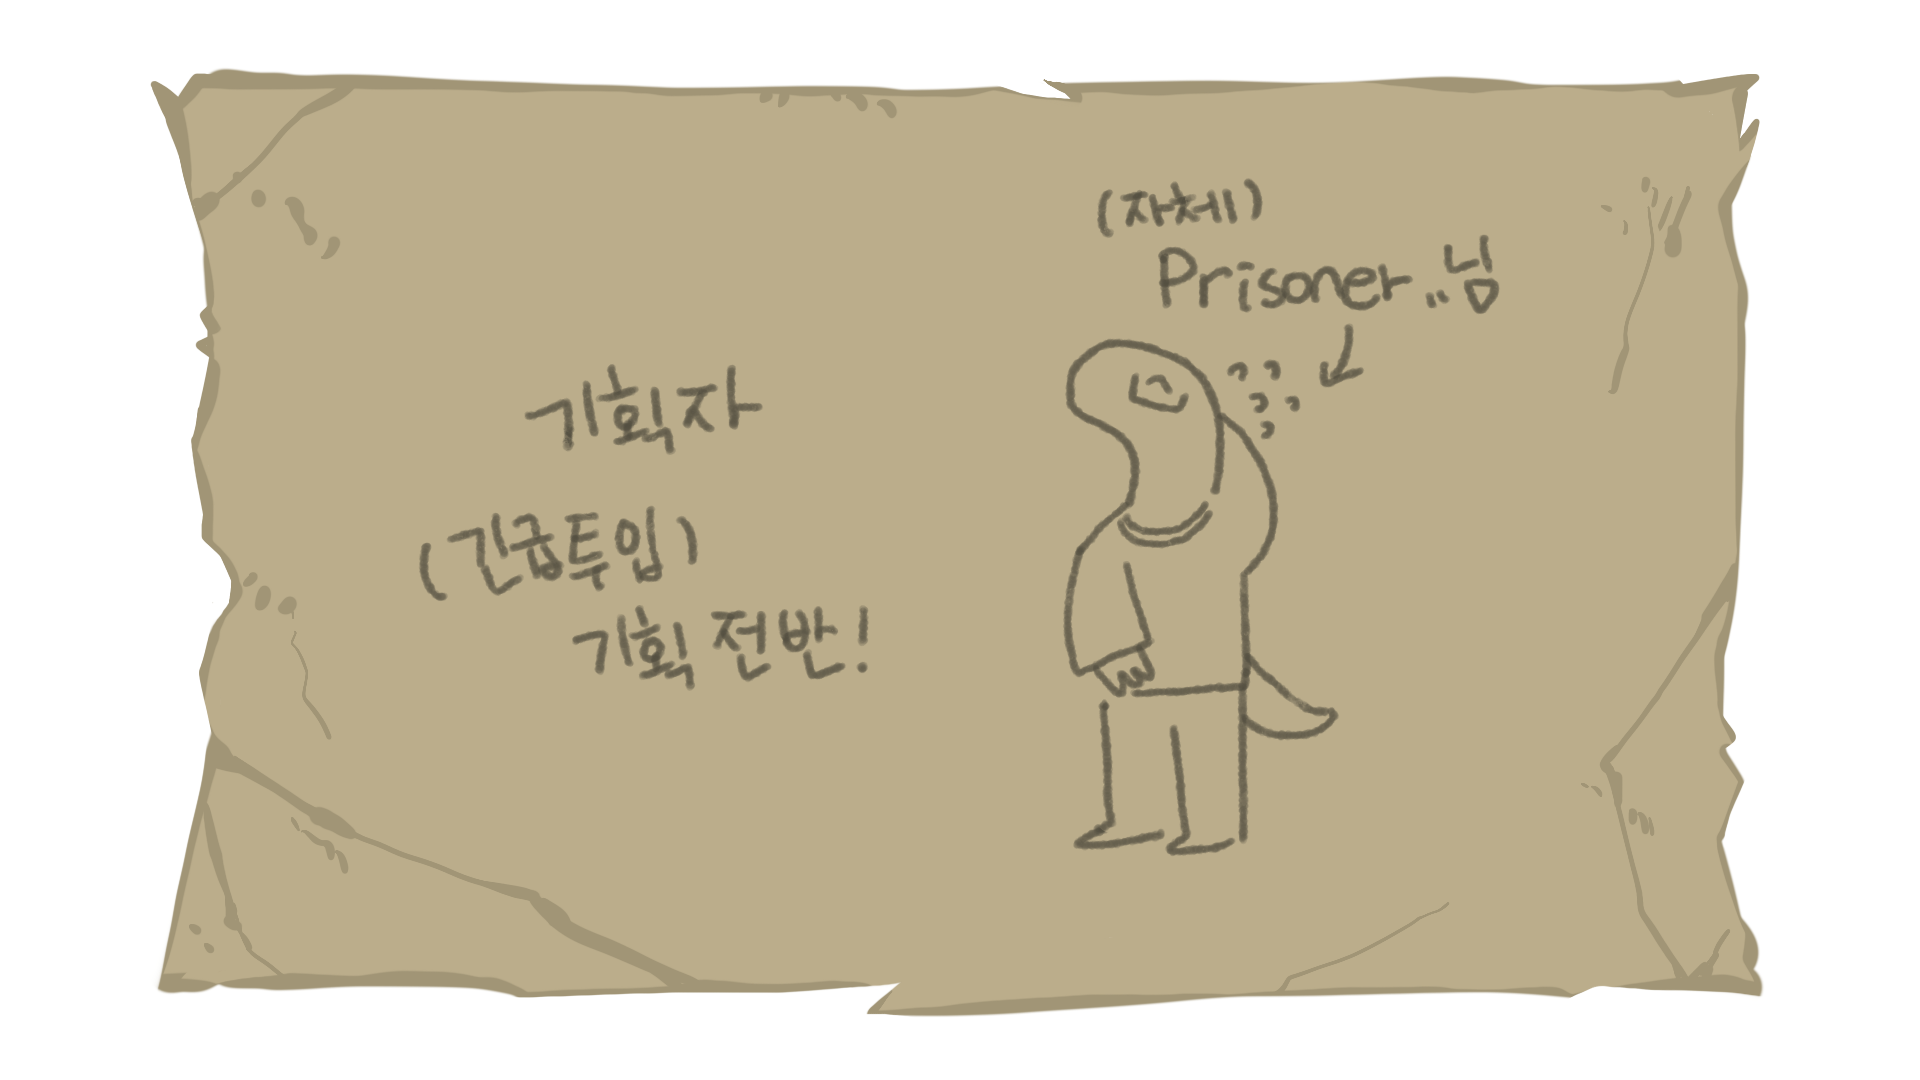 기획자
(긴급투입)
기획 전반!
(자체)
Prisoner..님